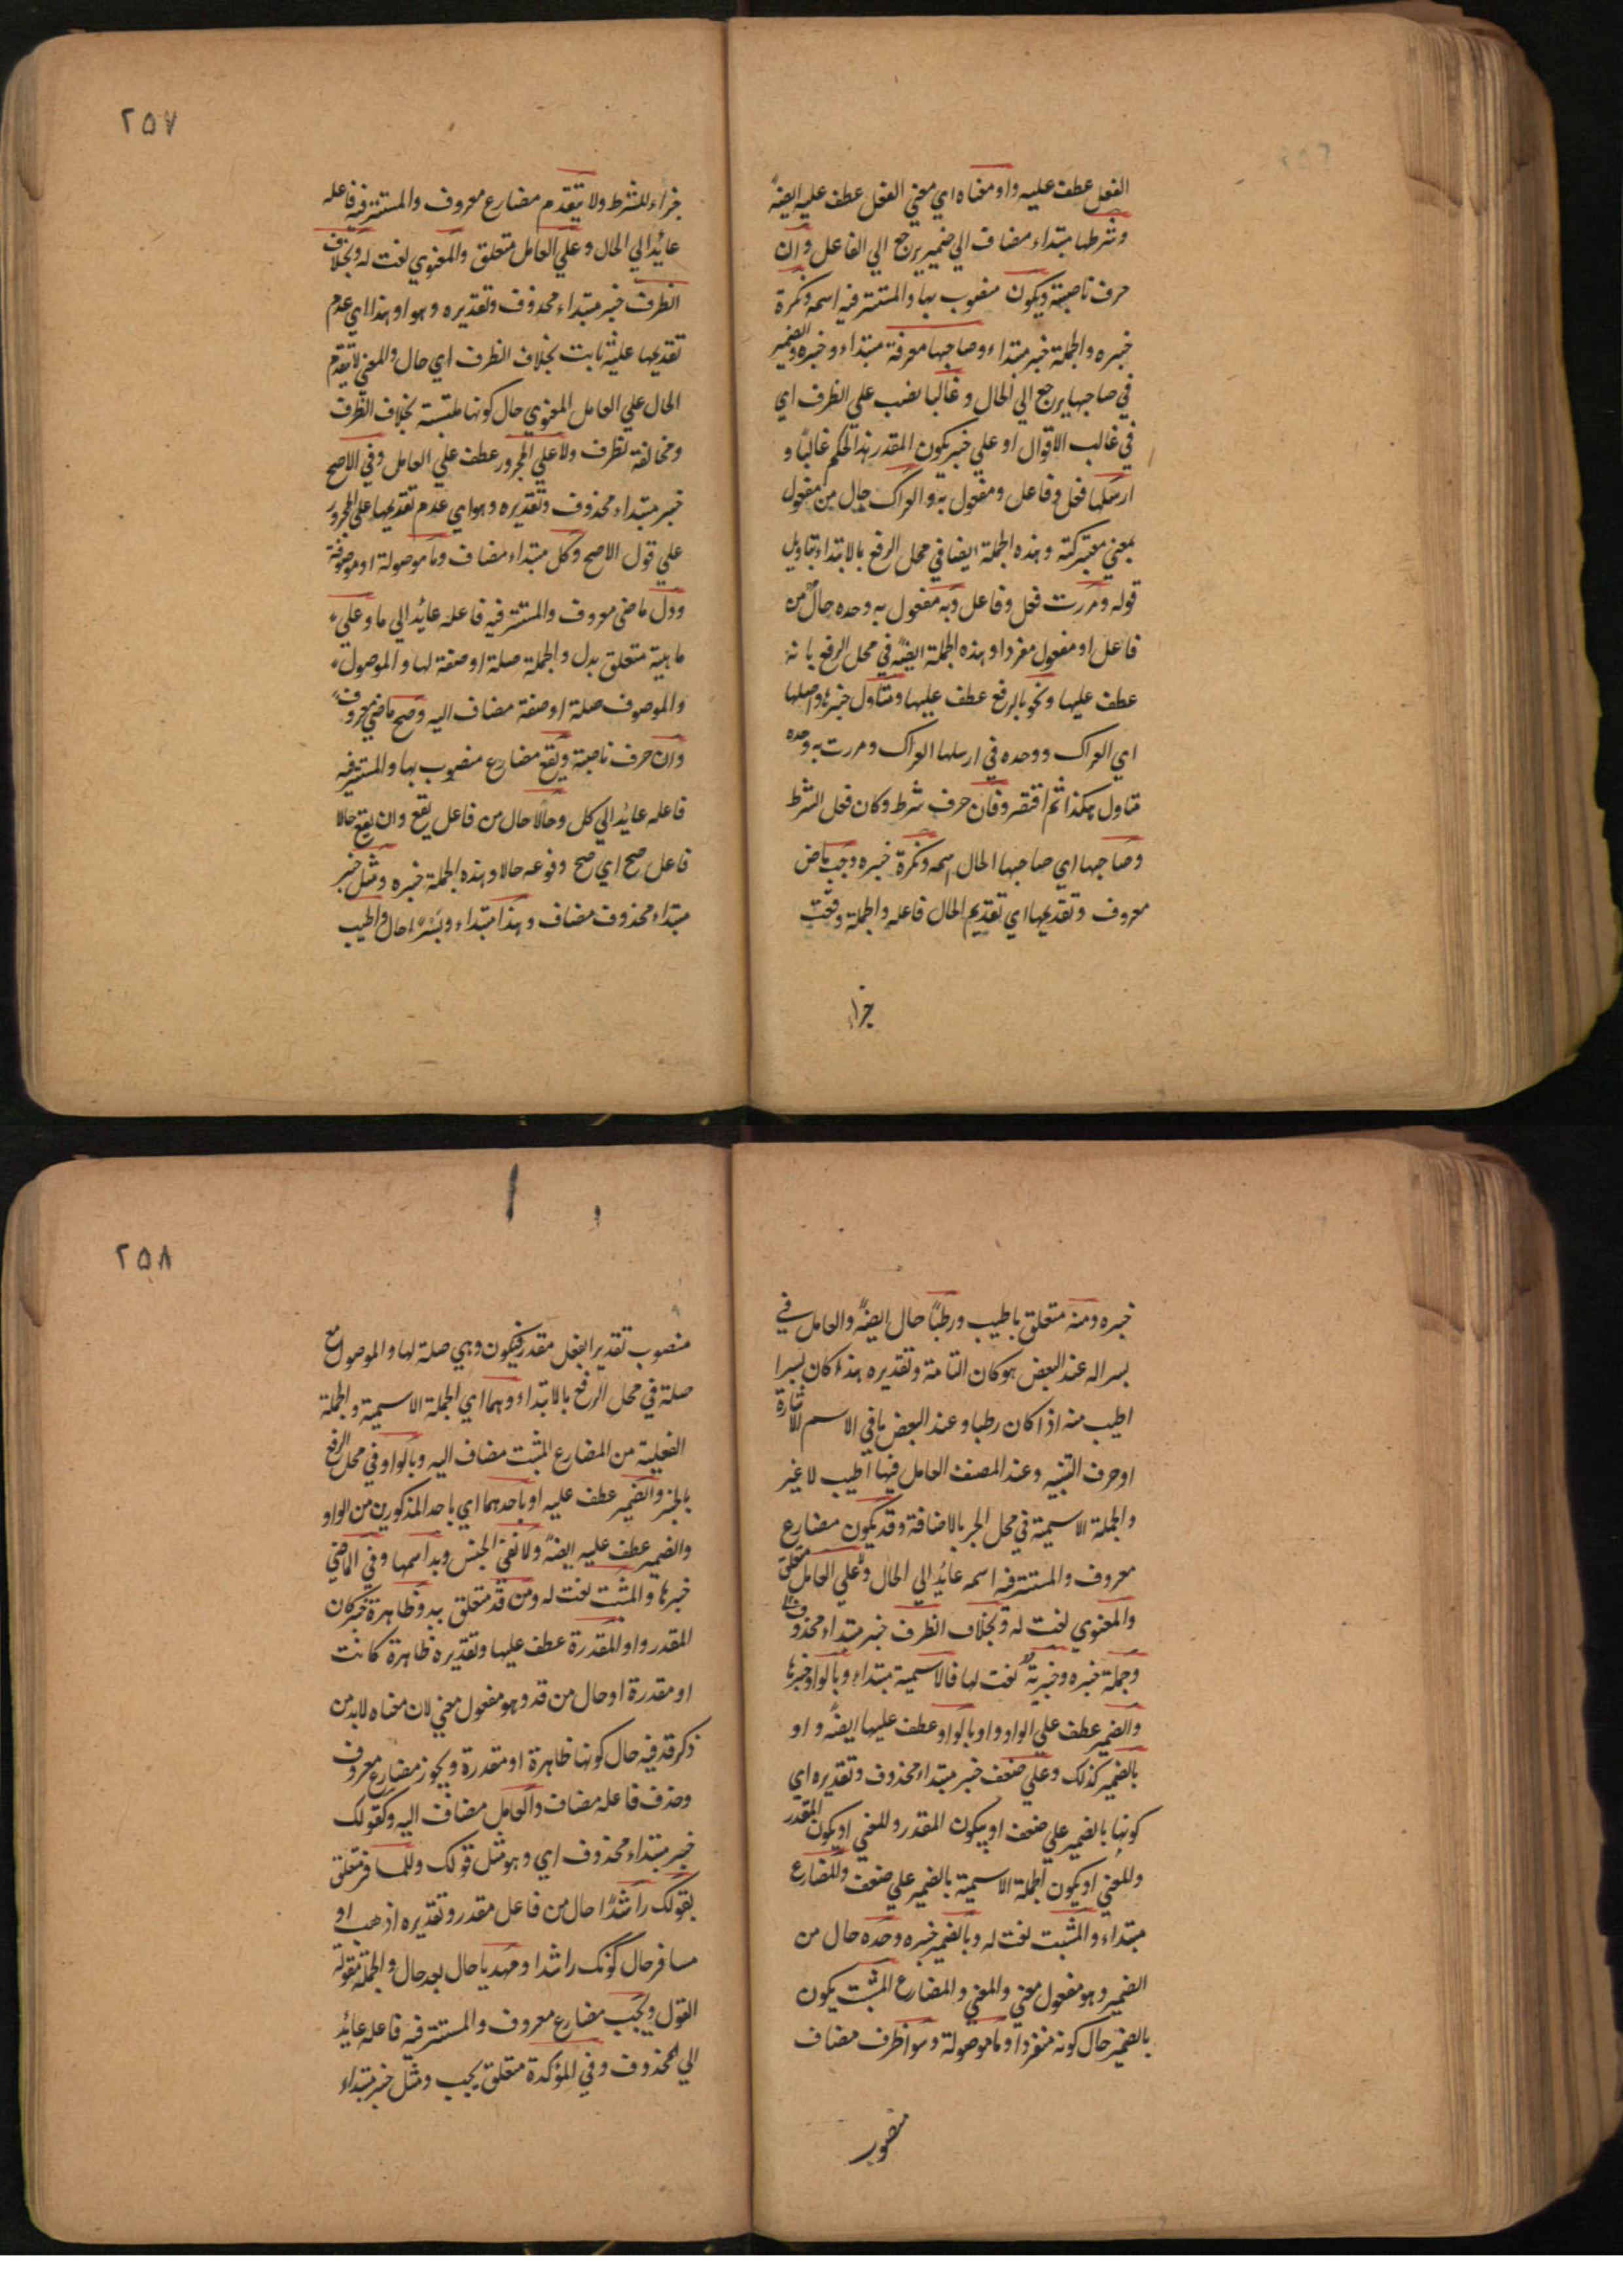 الفعل عطف عليه واو معناه اي معني الفعل عطف عليه ايضا
وشرطها مبتداء مضاف الي ضمير يرجع الي الفاعل وان
حرف ناصبة ويكون منصوب بها والمستتر فيه اسمه ونكرة
خبره والجملة خبر مبتداء وصاحبها معرفة مبتداء وخبره والضمير
في صاحبها يرجع الي الحال وغالبا نصب علي الظرف اي
في غالب الاقوال او علي خبر يكون المقدر هذا الحكم غالبا و
ارسلها فعل وفاعل ومفعول به والعراك حال من مفعول
بمعني معتركة وهذه الجملة ايضا في محل الرفع بالابتداء بتاويل
قوله ومررت فعل وفاعل وبه مفعول به وحده حال من
فاعل او مفعول مفردا وهذه الجملة ايضا في محل الرفع بانه
عطف عليها ونحو بالرفع عطف عليها ومتاول خبرها واصلها
اي العراك ووحده في ارسلها العراك ومررت به وحده
متاول هكذا ثم اقتصر وفان حرف شرط وكان فعل الشرط
وصاحبها اي صاحبها الحال اسمه ونكرة خبره وجب ماض
معروف وتقديمها اي تقديم الحال فاعله والجملة وقعت
جزاء
٢٥٧
جزاء للشرط ولا يتقدم مضارع معروف والمستتر فيه فاعله
عايد الي الحال وعلي العامل متعلق والمعنوي نعت له وبخلاف
الظرف خبر مبتداء محذوف وتقديره وهو او هذا اي عدم
تقديمها عليه ثابت بخلاف الظرف اي حال والمعني لا يتقدم
الحال علي العامل المعنوي حال كونها ملتبسة بخلاف الظرف
ومخالفة لظرف ولا علي المجرور عطف علي العامل وفي الاصح
خبر مبتداء محذوف وتقديره وهو اي عدم تقديمها علي المجرور
علي قول الاصح وكل مبتداء مضاف وما موصولة او موصوفة
ودل ماضي معروف والمستتر فيه فاعله عايد الي ما وعلي
ماهية متعلق بدل والجملة صلة او صفة لها والموصول
والموصوف صلة او صفة مضاف اليه وصح ماضي معروف
وان حرف ناصبة ويقع مضارع منصوب بها والمستتر فيه
فاعله عايد الي كل وحالا حال من فاعل يقع وان يقع حالا
فاعل صح اي صح وقوعه حالا وهذه الجملة خبره ومثل خبر
مبتداء محذوف مضاف وهذا مبتداء وبسرا حال واطيب
خبره ومنه متعلق باطيب ورطبا حال ايضا والعامل في
بسرا له عند البعض هو كان التامة وتقديره هذا كان بسرا
اطيب منه اذا كان رطبا وعند البعض ما في الاسم الاشارة
او حرف التنبيه وعند المصنف العامل فيها اطيب لا غير
والجملة الاسمية في محل الجر بالاضافة وقد يكون مضارع
معروف والمستتر فيه اسمه عايد الي الحال وعلي العامل متعلق
والمعنوي نعت له وبخلاف الظرف خبر مبتداء محذوف
وجملة خبره وخبرية نعت لها فالاسمية مبتداء وبالواو خبرها
والضمير عطف علي الواو واو بالواو عطف عليها ايضا واو
بالضمير كذلك وعلي ضعف خبر مبتداء محذوف وتقديره اي
كونها بالضمير علي ضعف او بيكون المقدر وللمعني او يكون المقدر
وللمعني او يكون الجملة الاسمية بالضمير علي ضعف والمضارع
مبتداء والمثبت نعت له وبالضمير خبره وحده حال من
الضمير وهو مفعول معني والمعني والمضارع المثبت يكون
بالضمير حال كونه منفردا وما موصولة وسوا ظرف مضاف
منصوب
٢٥٨
منصوب تقديرا بفعل مقدر فيكون وهي صلة لها والموصول مع
صلة في محل الرفع بالابتداء وهما اي الجملة الاسمية والجملة
الفعلية من المضارع المثبت مضاف اليه وبالواو في محل الرفع
بالخبر والضمير عطف عليه او باحدهما اي باحد المذكورين من الواو
والضمير عطف عليه ايضا ولا نفي الجنس وبد اسمها وفي الماضي
خبرها والمثبت نعت له ومن قد متعلق ببد وظاهرة خبر كان
المقدر واو المقدرة عطف عليها وتقديره ظاهرة كانت
او مقدرة او حال من قد وهو مفعول معني لان معناه لابد من
ذكر قد فيه حال كونها ظاهرة او مقدرة ويجوز مضارع معروف
وحذف فاعله مضاف والعامل مضاف اليه وكقولك
خبر مبتداء محذوف اي وهو مثل قولك وللمسافر متعلق
بقولك راشدا حال من فاعل مقدر وتقديره اذهب او
سافر حال كونك راشدا ومهديا حال بعد حال والجملة مقولة
القول ويجب مضارع معروف والمستتر فيه فاعله عايد
الي المحذوف وفي المؤكدة متعلق يجب ومثل خبر مبتداء